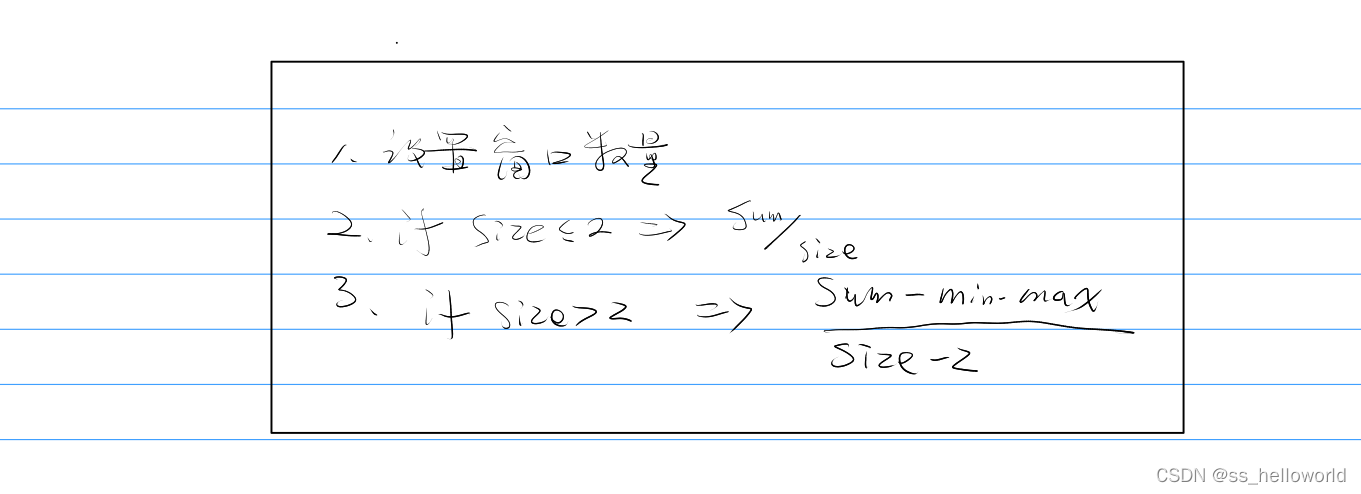 1、设置窗口数量
2、if size≤2 => sum/size
3、if size>2 => sum-min-max
size-2
CSDN @ss_helloworld